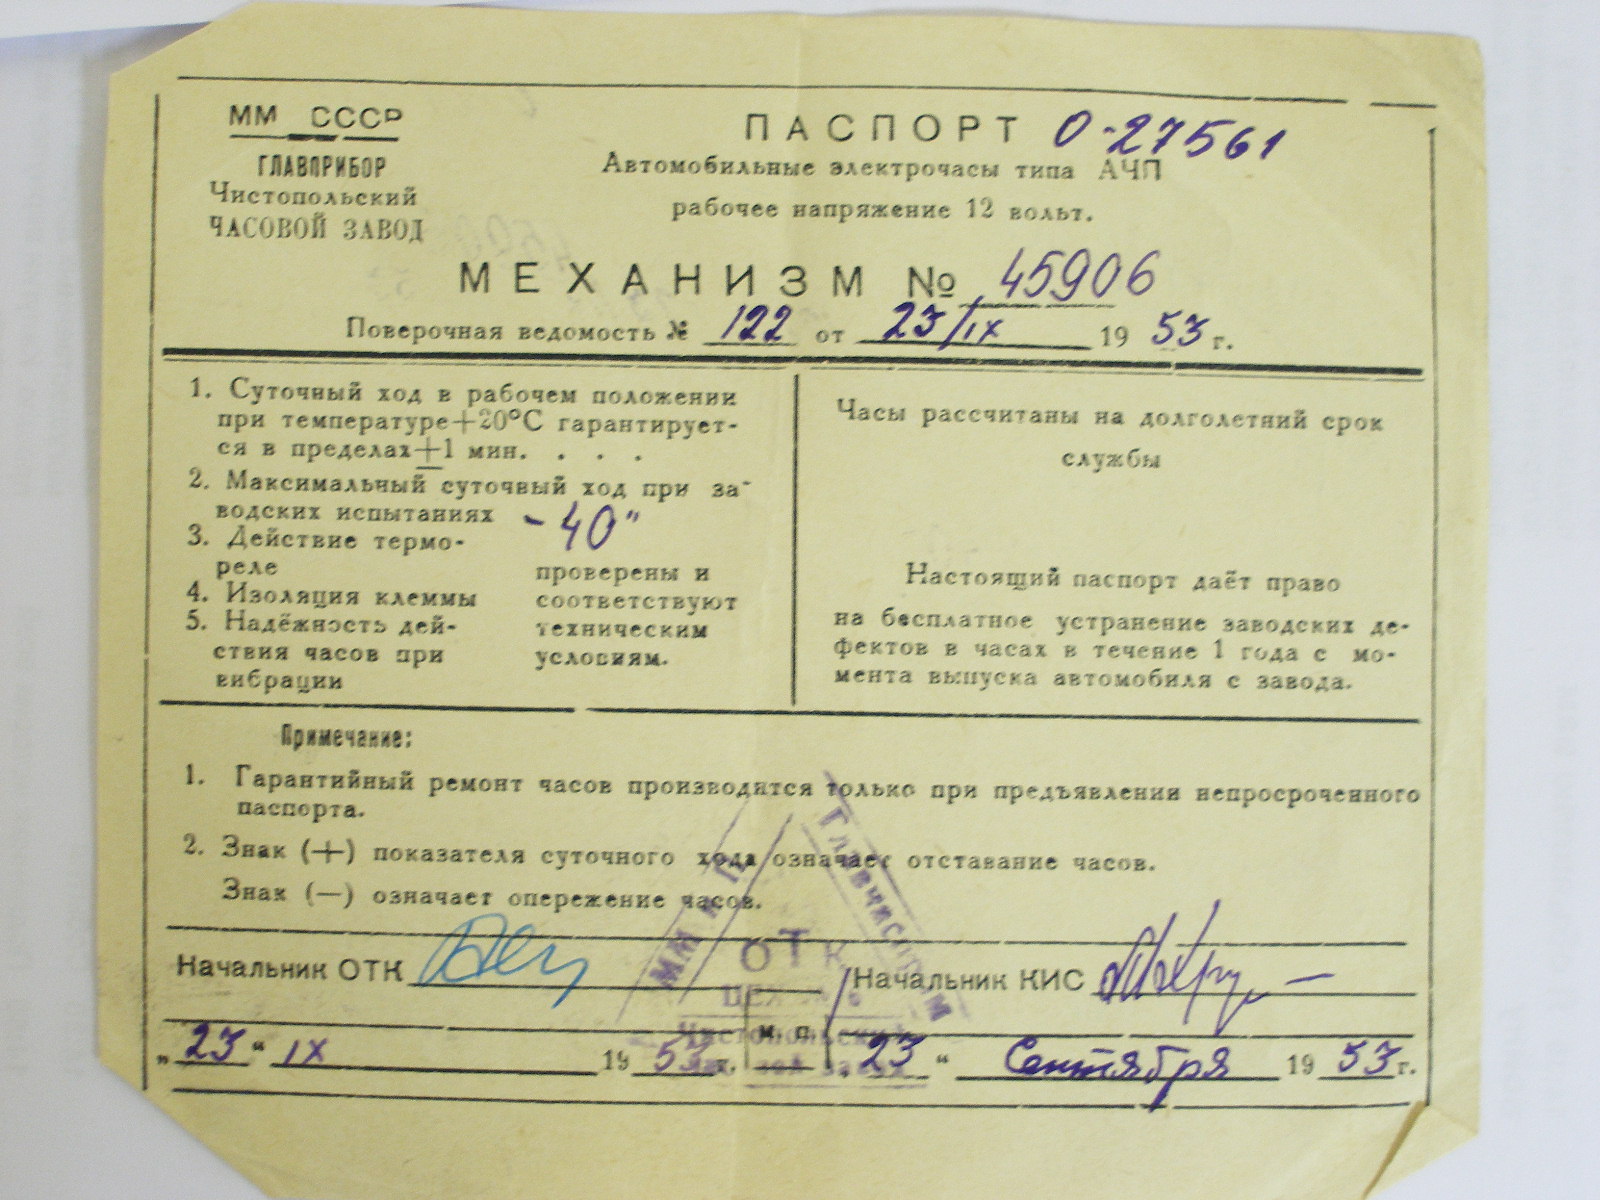 ММ СССР
ГЛАВПРИБОР
Чистопольский
ЧАСОВОЙ ЗАВОД
ПАСПОРТ О-27561
Автомобильные электрочасы типа АЧП
рабочее напряжение 12 вольт.
МЕХАНИЗМ № 45906
Поверочная ведомость № 122 от 23/IX 1953 г.
1. Суточный ход в рабочем положении
при температуре +20°С гарантирует-
ся в пределах ±1 мин. . . .
2. Максимальный суточвый ход при за-
водских испытаниях - 40"
3. Действие термо-
реле
4. Изоляция клеммы
5. Надёжность дей-
ствия часов при
вибрации
проверены и
соответствуют
техническим
условиям.
Часы рассчитаны на долголетний срок
службы
Настоящий паспорт даёт право
на бесплатное устранение заводских де-
фектов в часах в течение 1 года с мо-
мента выпуска автомобиля с завода.
Примечание:
1. Гарантийный ремонт часов производится только при предъявлении непросроченного
паспорта.
2. Знак (+) показателя суточного хода означает отставание часов.
Знак (—) означает опережение часов.
ММ и П
ОТК
Начальник ОТК
Начальник КИС
„23“ IX 1953 г.
м. п.
„23“ Сентября 1953 г.